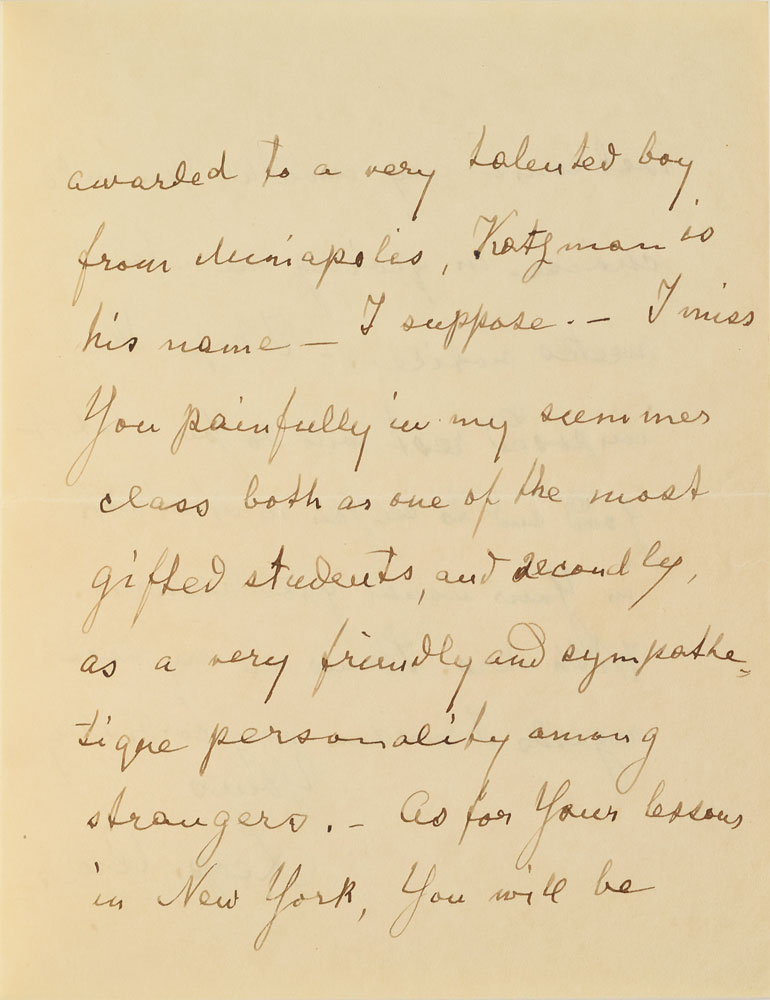 awarded to a very talented boy
from Minniapolis, Katzman is
his name – I suppose. – I miss
You painfully in my summer
class both as one of the most
gifted students, and secondly,
as a very friendly and sympathe-
tique personality among
strangers. – As for Your lessons
in New York, You will be